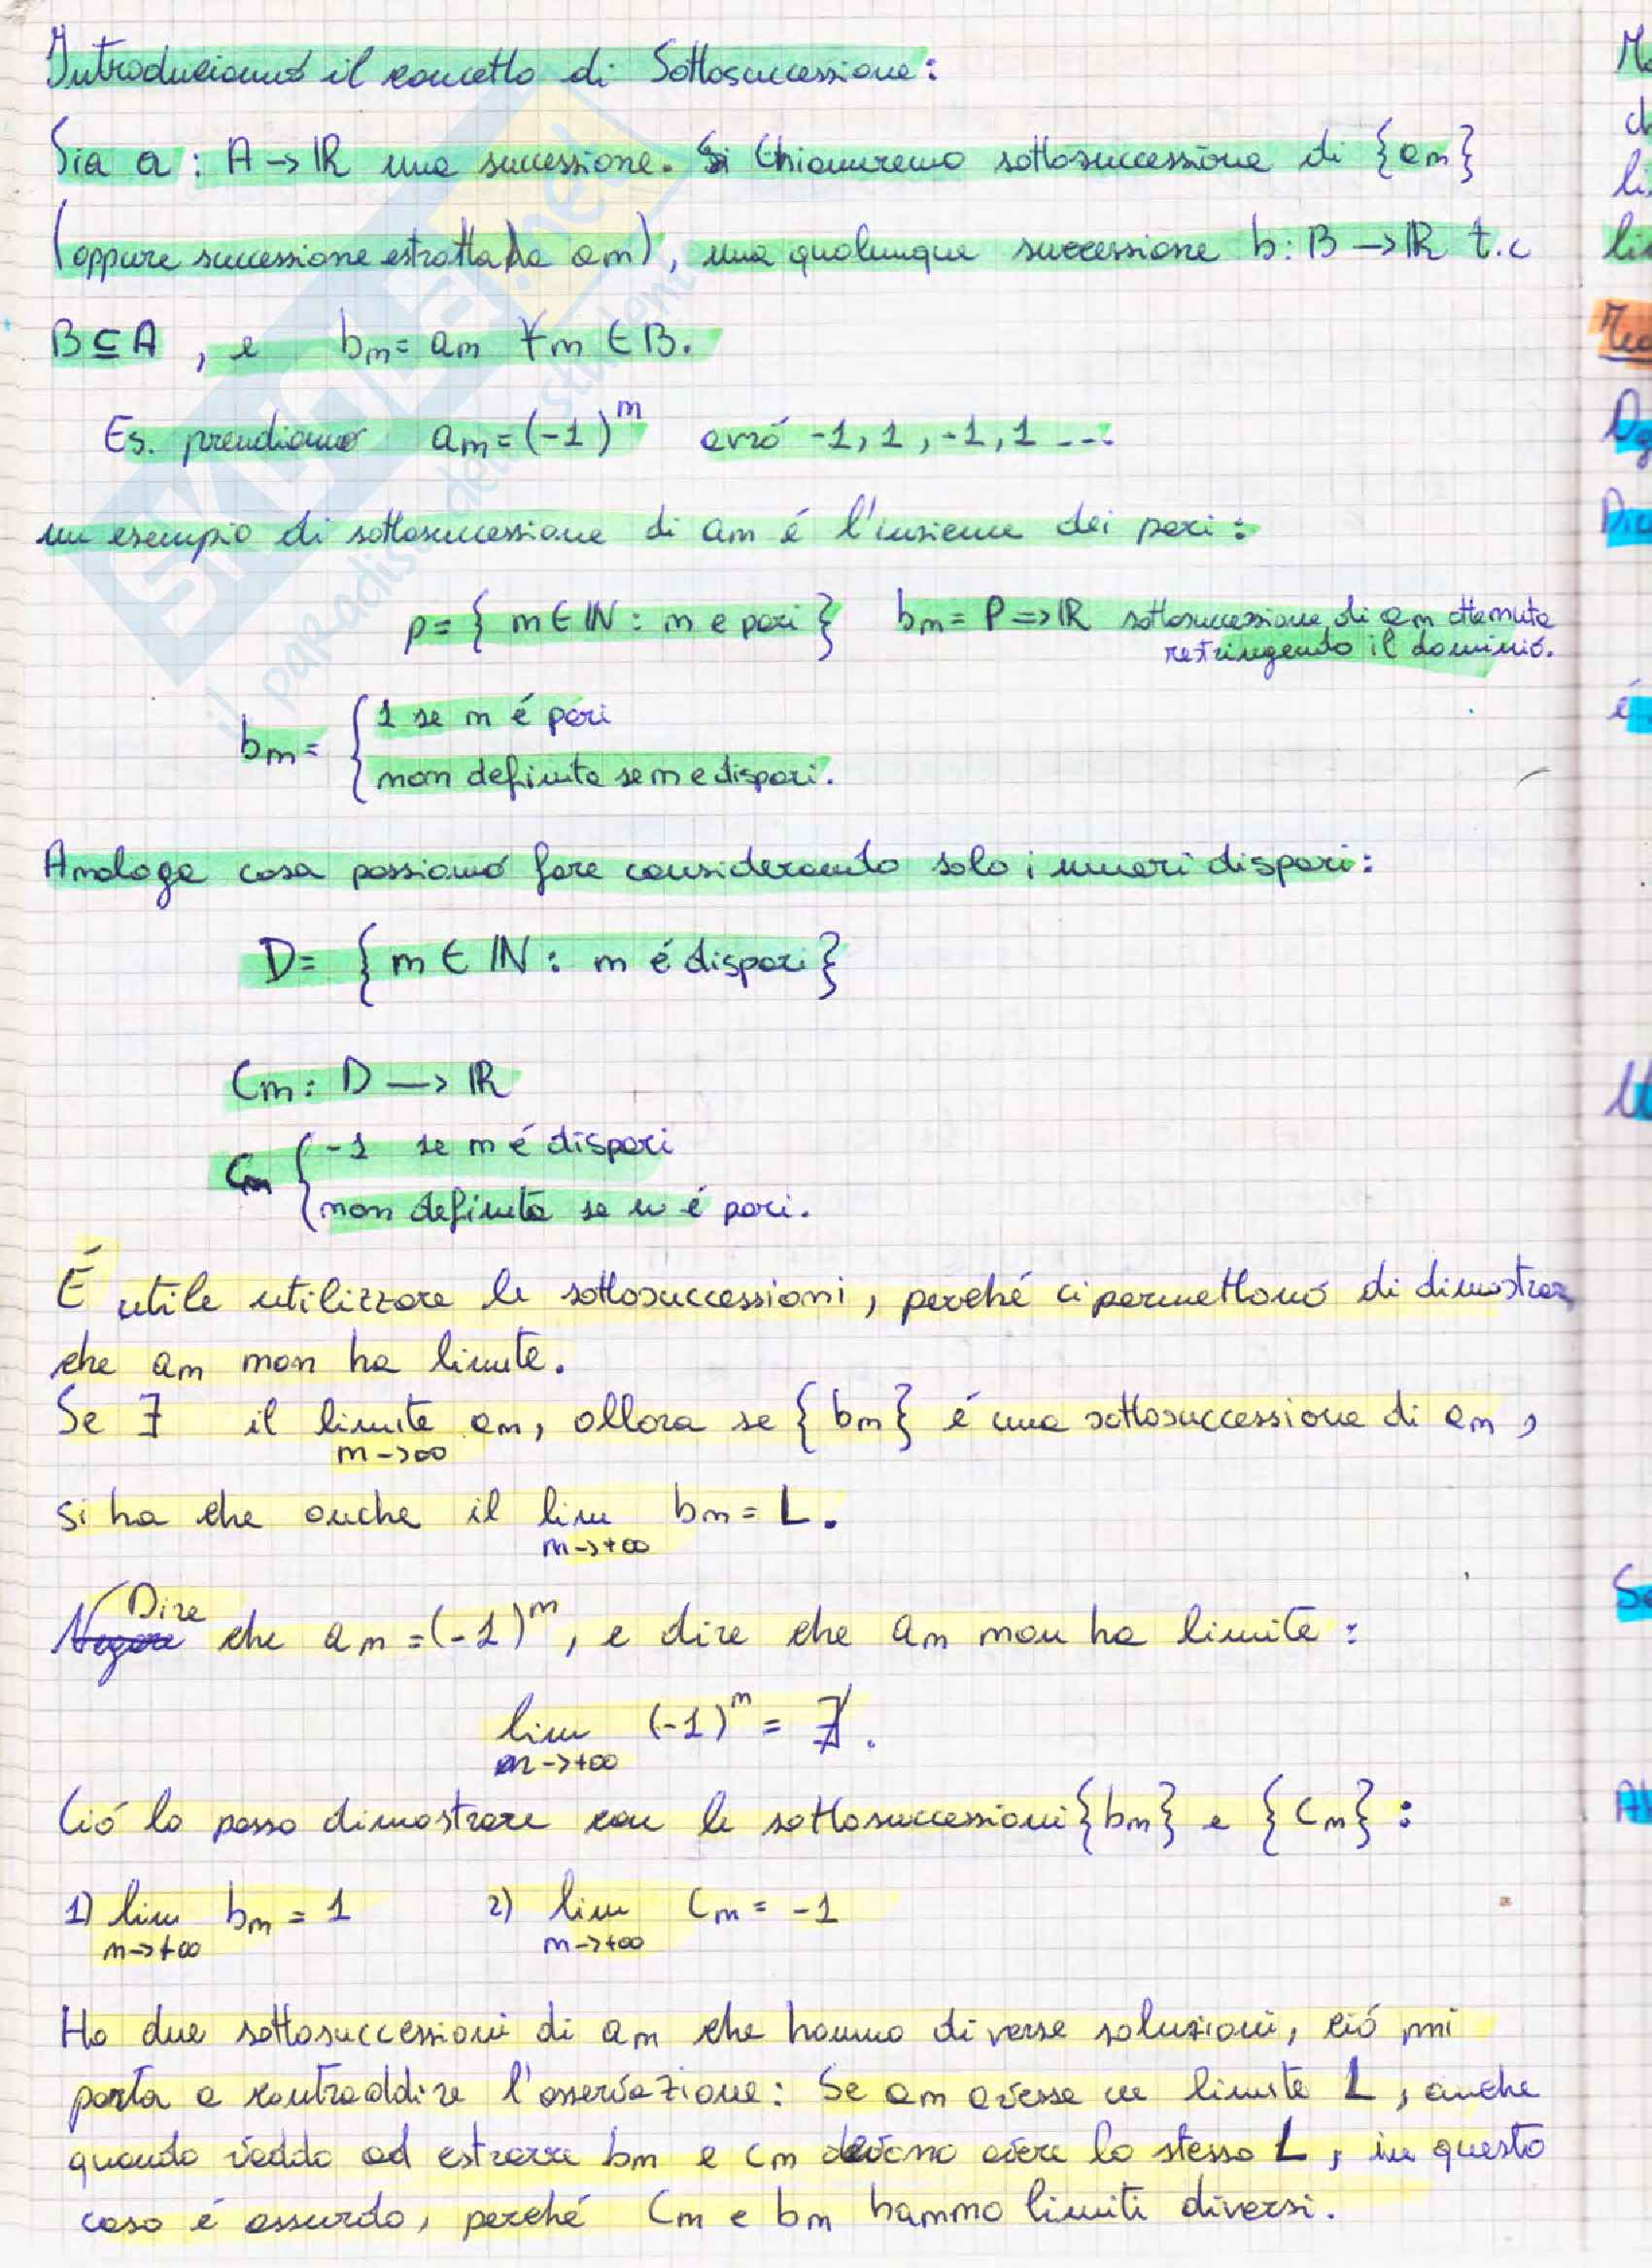 Introduciamo il concetto di Sottosuccessione:
Sia a : A → ℝ una successione. Si Chiameremo sottosuccessione di {an}
(oppure successione estratta da an), una qualunque successione b: B → ℝ t.c
B ⊆ A , e bn = an ∀n ∈ B.
Es. prendiamo an = (-1)^n avró -1, 1, -1, 1 ---
un esempio di sottosuccessione di an é l'insieme dei pari :
p = { n ∈ ℕ : n e pari } bn = P => ℝ sottosuccessione di an ottenuta
restringendo il dominio.
bn = { 1 se n é pari
non definita se n e dispari.
Analoga cosa possiamo fare considerando solo i numeri dispari:
D = { n ∈ ℕ : n é dispari }
Cn : D → ℝ
Cn { -1 se n é dispari
non definita se n é pari.
É utile utilizzare le sottosuccessioni, perché ci permettono di dimostrare
che an non ha limite.
Se ∃ il limite an, allora se {bn} é una sottosuccessione di an,
n → ∞
si ha che anche il lim bn = L.
n → +∞
Dire
Negare che an = (-1)^n, e dire che an non ha limite :
lim (-1)^n = ∄.
n → +∞
Ció lo posso dimostrare con le sottosuccessioni {bn} e {Cn} :
1) lim bn = 1 2) lim Cn = -1
n → +∞ n → +∞
Ho due sottosuccessioni di an che hanno diverse soluzioni, ció mi
porta a contraddire l'osservazione: Se an avesse un limite L, anche
quando vaddo ad estrarre bn e Cn devono avere lo stesso L, in questo
caso é assurdo, perché Cn e bn hanno limiti diversi.
SKUOLA.net
il paradiso dello studente